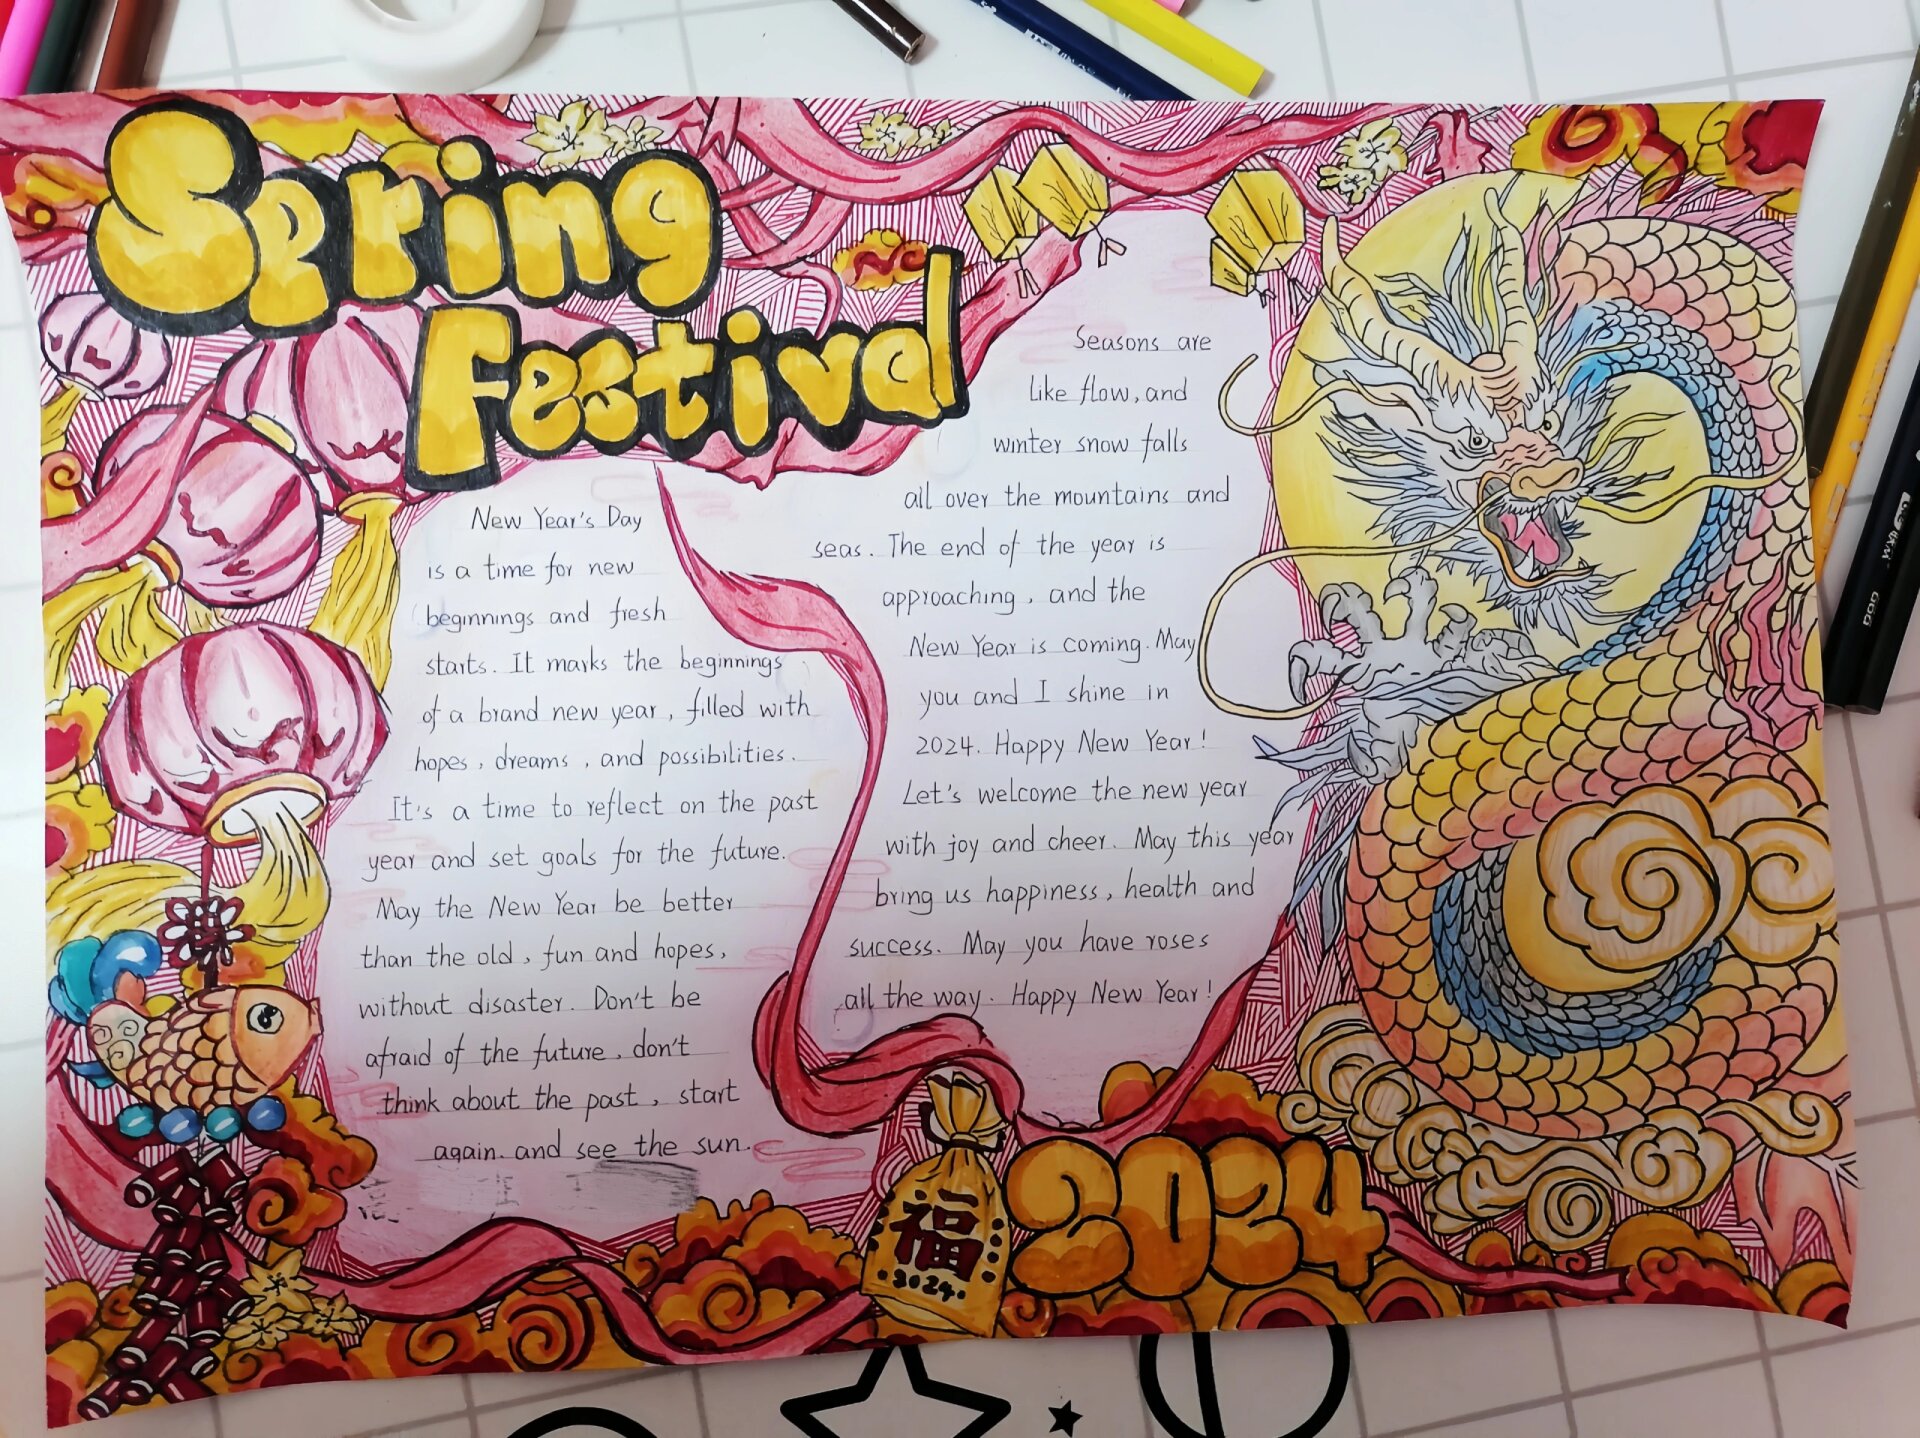 Spring
Festival
New Year's Day
is a time for new
beginnings and fresh
starts. It marks the beginnings
of a brand new year, filled with
hopes, dreams, and possibilities.
It's a time to reflect on the past
year and set goals for the future.
May the New Year be better
than the old, fun and hopes,
without disaster. Don't be
afraid of the future, don't
think about the past, start
again. and see the sun.
Seasons are
like flow, and
winter snow falls
all over the mountains and
seas. The end of the year is
approaching, and the
New Year is coming. May
you and I shine in
2024. Happy New Year!
Let's welcome the new year
with joy and cheer. May this year
bring us happiness, health and
success. May you have roses
all the way. Happy New Year!
福
·2024·
2024